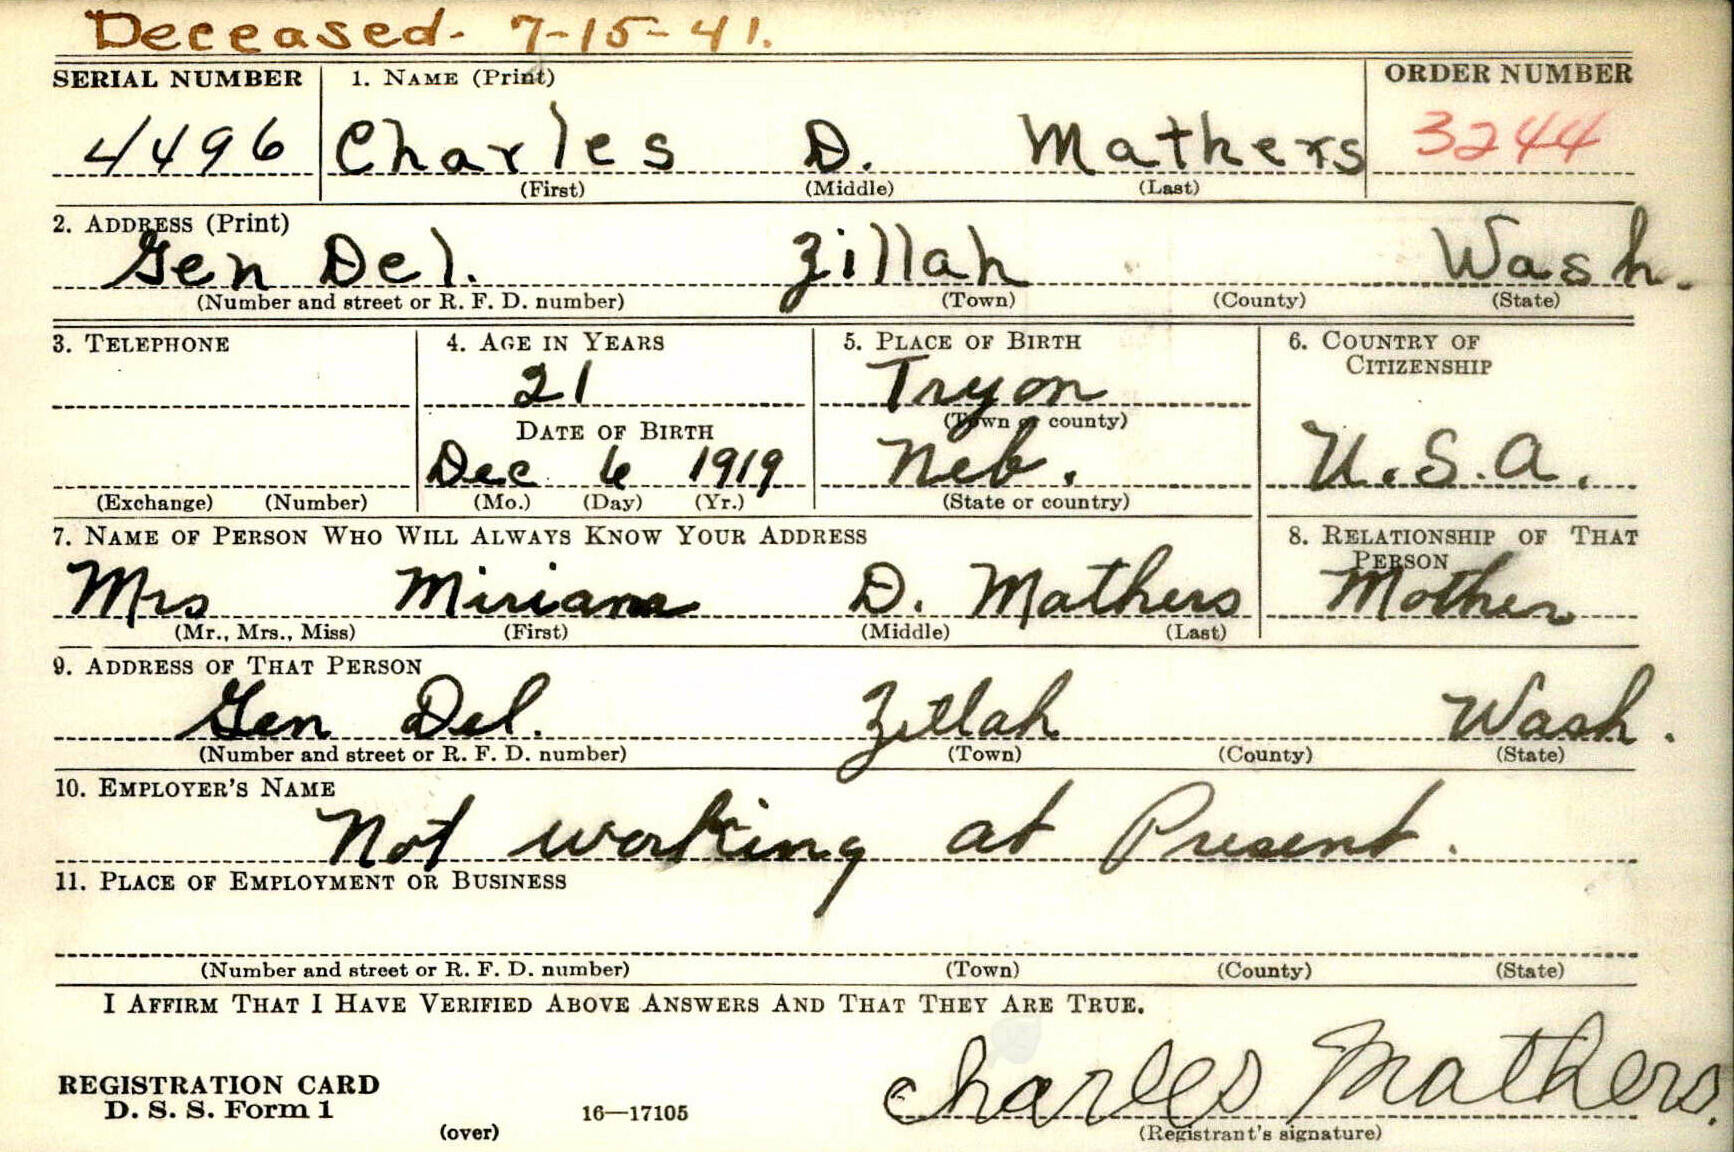 Deceased- 7-15-41.
SERIAL NUMBER 1. NAME (Print) ORDER NUMBER
4496 Charles D. Mathers 3244
(First) (Middle) (Last)
2. ADDRESS (Print)
Gen Del. Zillah Wash.
(Number and street or R. F. D. number) (Town) (County) (State)
3. TELEPHONE 4. AGE IN YEARS 5. PLACE OF BIRTH 6. COUNTRY OF CITIZENSHIP
21 Tryon
(Town or county)
DATE OF BIRTH
Dec 6 1919 Neb. U.S.A.
(Exchange) (Number) (Mo.) (Day) (Yr.) (State or country)
7. NAME OF PERSON WHO WILL ALWAYS KNOW YOUR ADDRESS 8. RELATIONSHIP OF THAT PERSON
Mrs Miriam D. Mathers Mother
(Mr., Mrs., Miss) (First) (Middle) (Last)
9. ADDRESS OF THAT PERSON
Gen Del. Zillah Wash.
(Number and street or R. F. D. number) (Town) (County) (State)
10. EMPLOYER'S NAME
Not working at Present.
11. PLACE OF EMPLOYMENT OR BUSINESS
(Number and street or R. F. D. number) (Town) (County) (State)
I AFFIRM THAT I HAVE VERIFIED ABOVE ANSWERS AND THAT THEY ARE TRUE.
REGISTRATION CARD
D. S. S. Form 1 16—17105 Charles Mathers.
(over) (Registrant's signature)